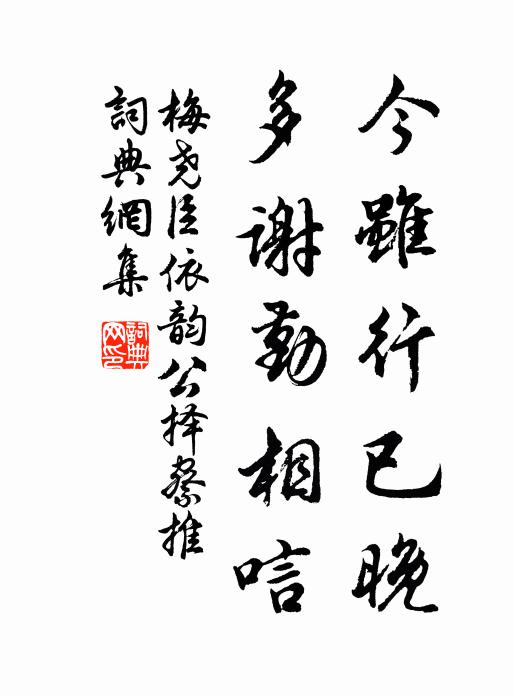 今雖行已晚
多謝勤相唁
梅堯臣依韵公择察推
詞典網集
詞典網印